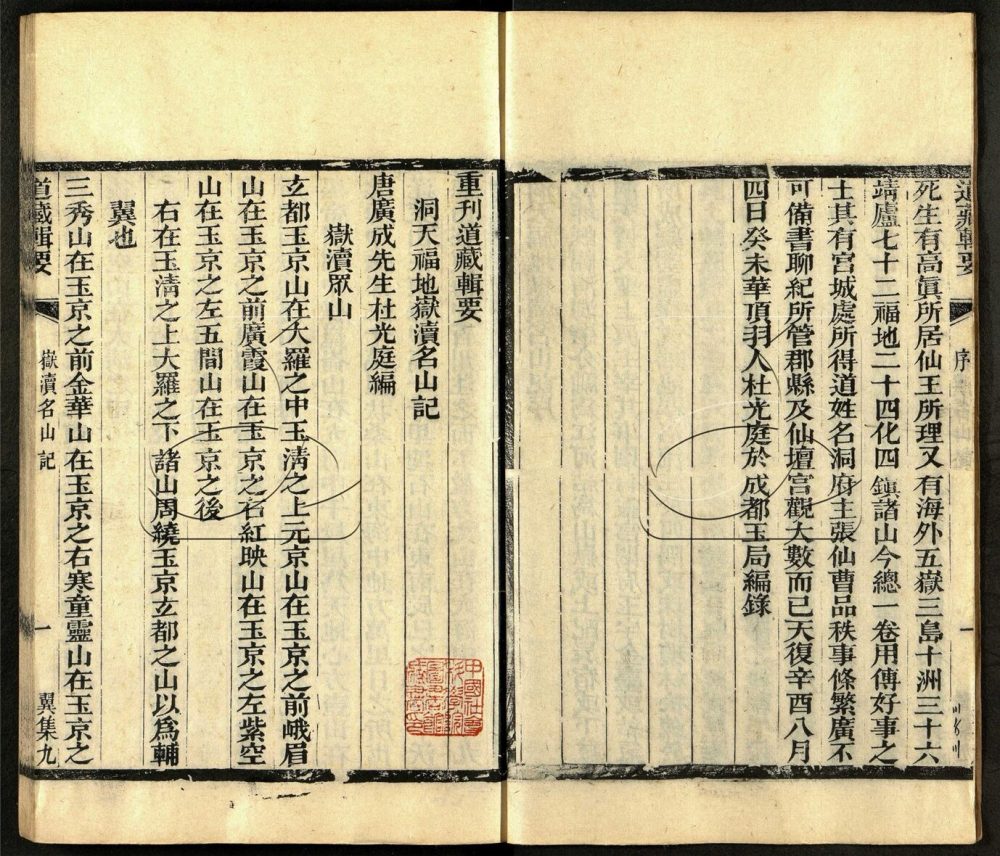 道藏輯要
序
一
死生有高眞所居仙王所理又有海外五嶽三島十洲三十六
靖廬七十二福地二十四化四鎮諸山今總一卷用傳好事之
士其有宮城處所得道姓名洞府主張仙曹品秩事條繁廣不
可備書聊紀所管郡縣及仙壇宮觀大數而已天復辛酉八月
四日癸未華頂羽人杜光庭於成都玉局編錄
重刊道藏輯要
洞天福地嶽瀆名山記
唐廣成先生杜光庭編
嶽瀆眾山
玄都玉京山在大羅之中玉清之上元京山在玉京之前峨眉
山在玉京之前廣霞山在玉京之右紅映山在玉京之左紫空
山在玉京之左五間山在玉京之後
右在玉清之上大羅之下諸山周繞玉京玄都之山以爲輔
翼也
三秀山在玉京之前金華山在玉京之右寒童靈山在玉京之
道藏輯要
嶽瀆名山記
一
翼集九